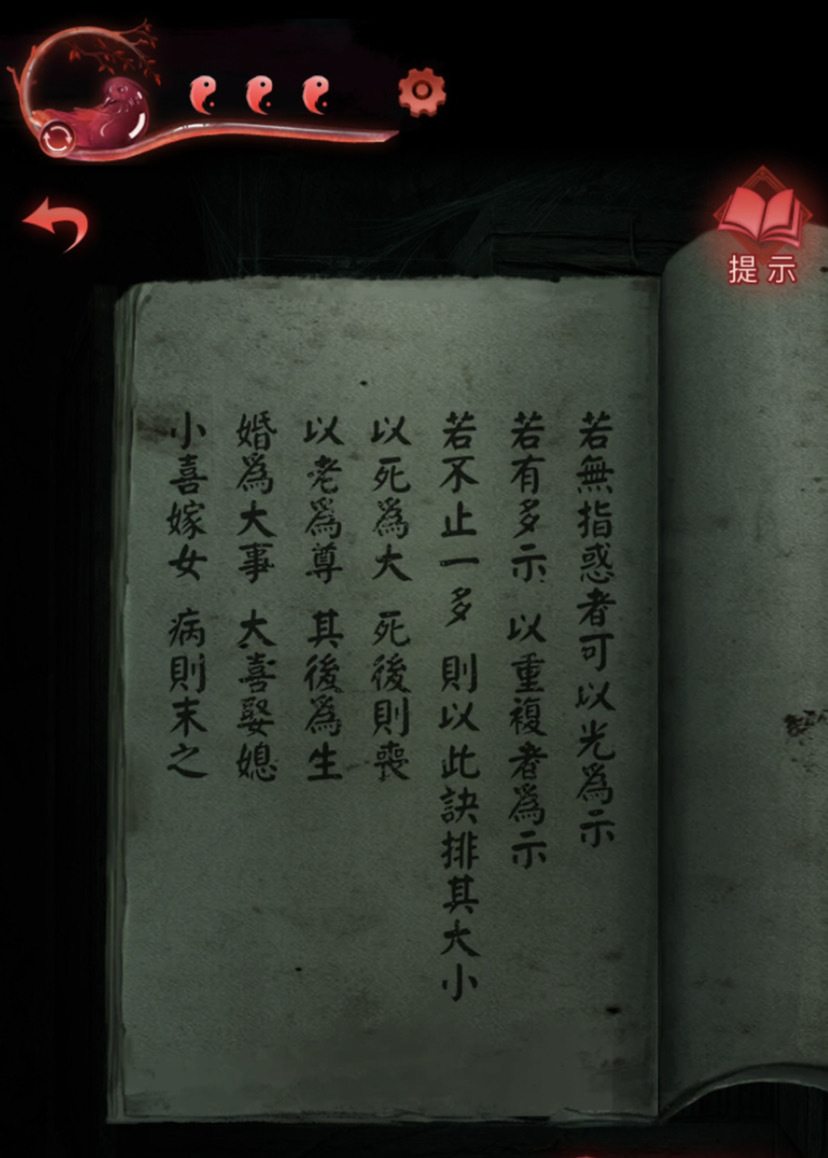 提示
若無指惑者可以光爲示
若有多示 以重複者爲示
若不止一多 則以此訣排其大小
以死爲大 死後則喪
以老爲尊 其後爲生
婚爲大事 大喜娶媳
小喜嫁女 病則末之